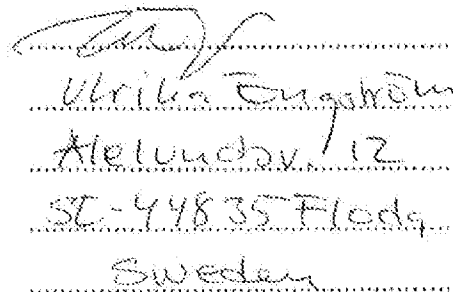 Ulrika Engström
Alelundsv. 12
SE-44835 Floda
Sweden